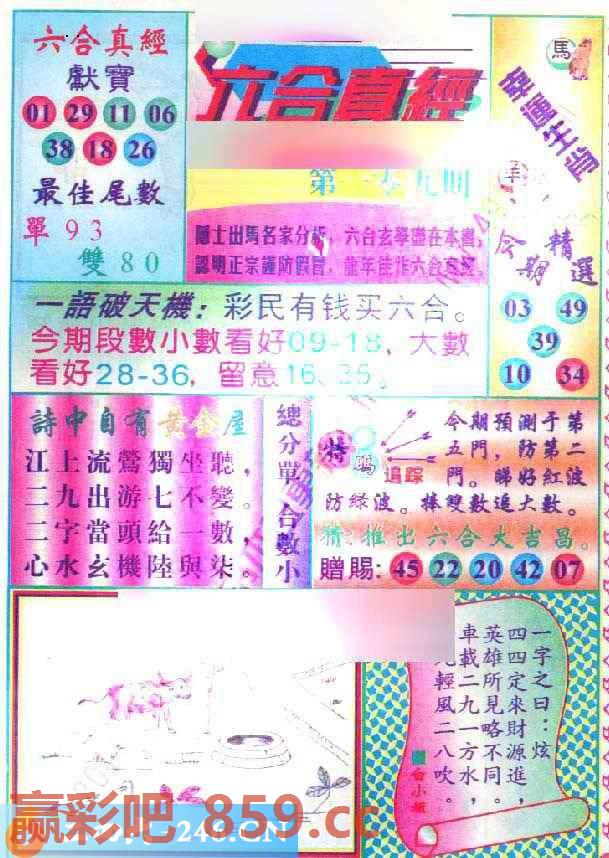 六合真經
獻寶
01 29 11 06
38 18 26
最佳尾數
單93
雙80
六合真經
隱士出馬名家分析，六合玄學盡在本書，
認明正宗謹防假冒，龍年佳作六合真經。
馬
幸運生肖
羊
今期精選
03 49
39
10 34
一語破天機：彩民有钱买六合。
今期段數小數看好09-18，大數
看好28-36，留意16、35。
詩中自有黃金屋
江上流鶯獨坐聽，
二九出游七不變。
二字當頭給一數，
心水玄機陸與柒。
總分單 合數小
特碼
追踪
今期預測于第
五門，防第二
門。睇好紅波
防綠波。捧雙數追大數。
猜：推出六合大吉昌。
贈賜：45 22 20 42 07
一字之曰：炫
四四定來財源進，
英雄所見略不同。
車載二九一方水，
輕風二八吹。
赢彩吧-859.cc
246.CN